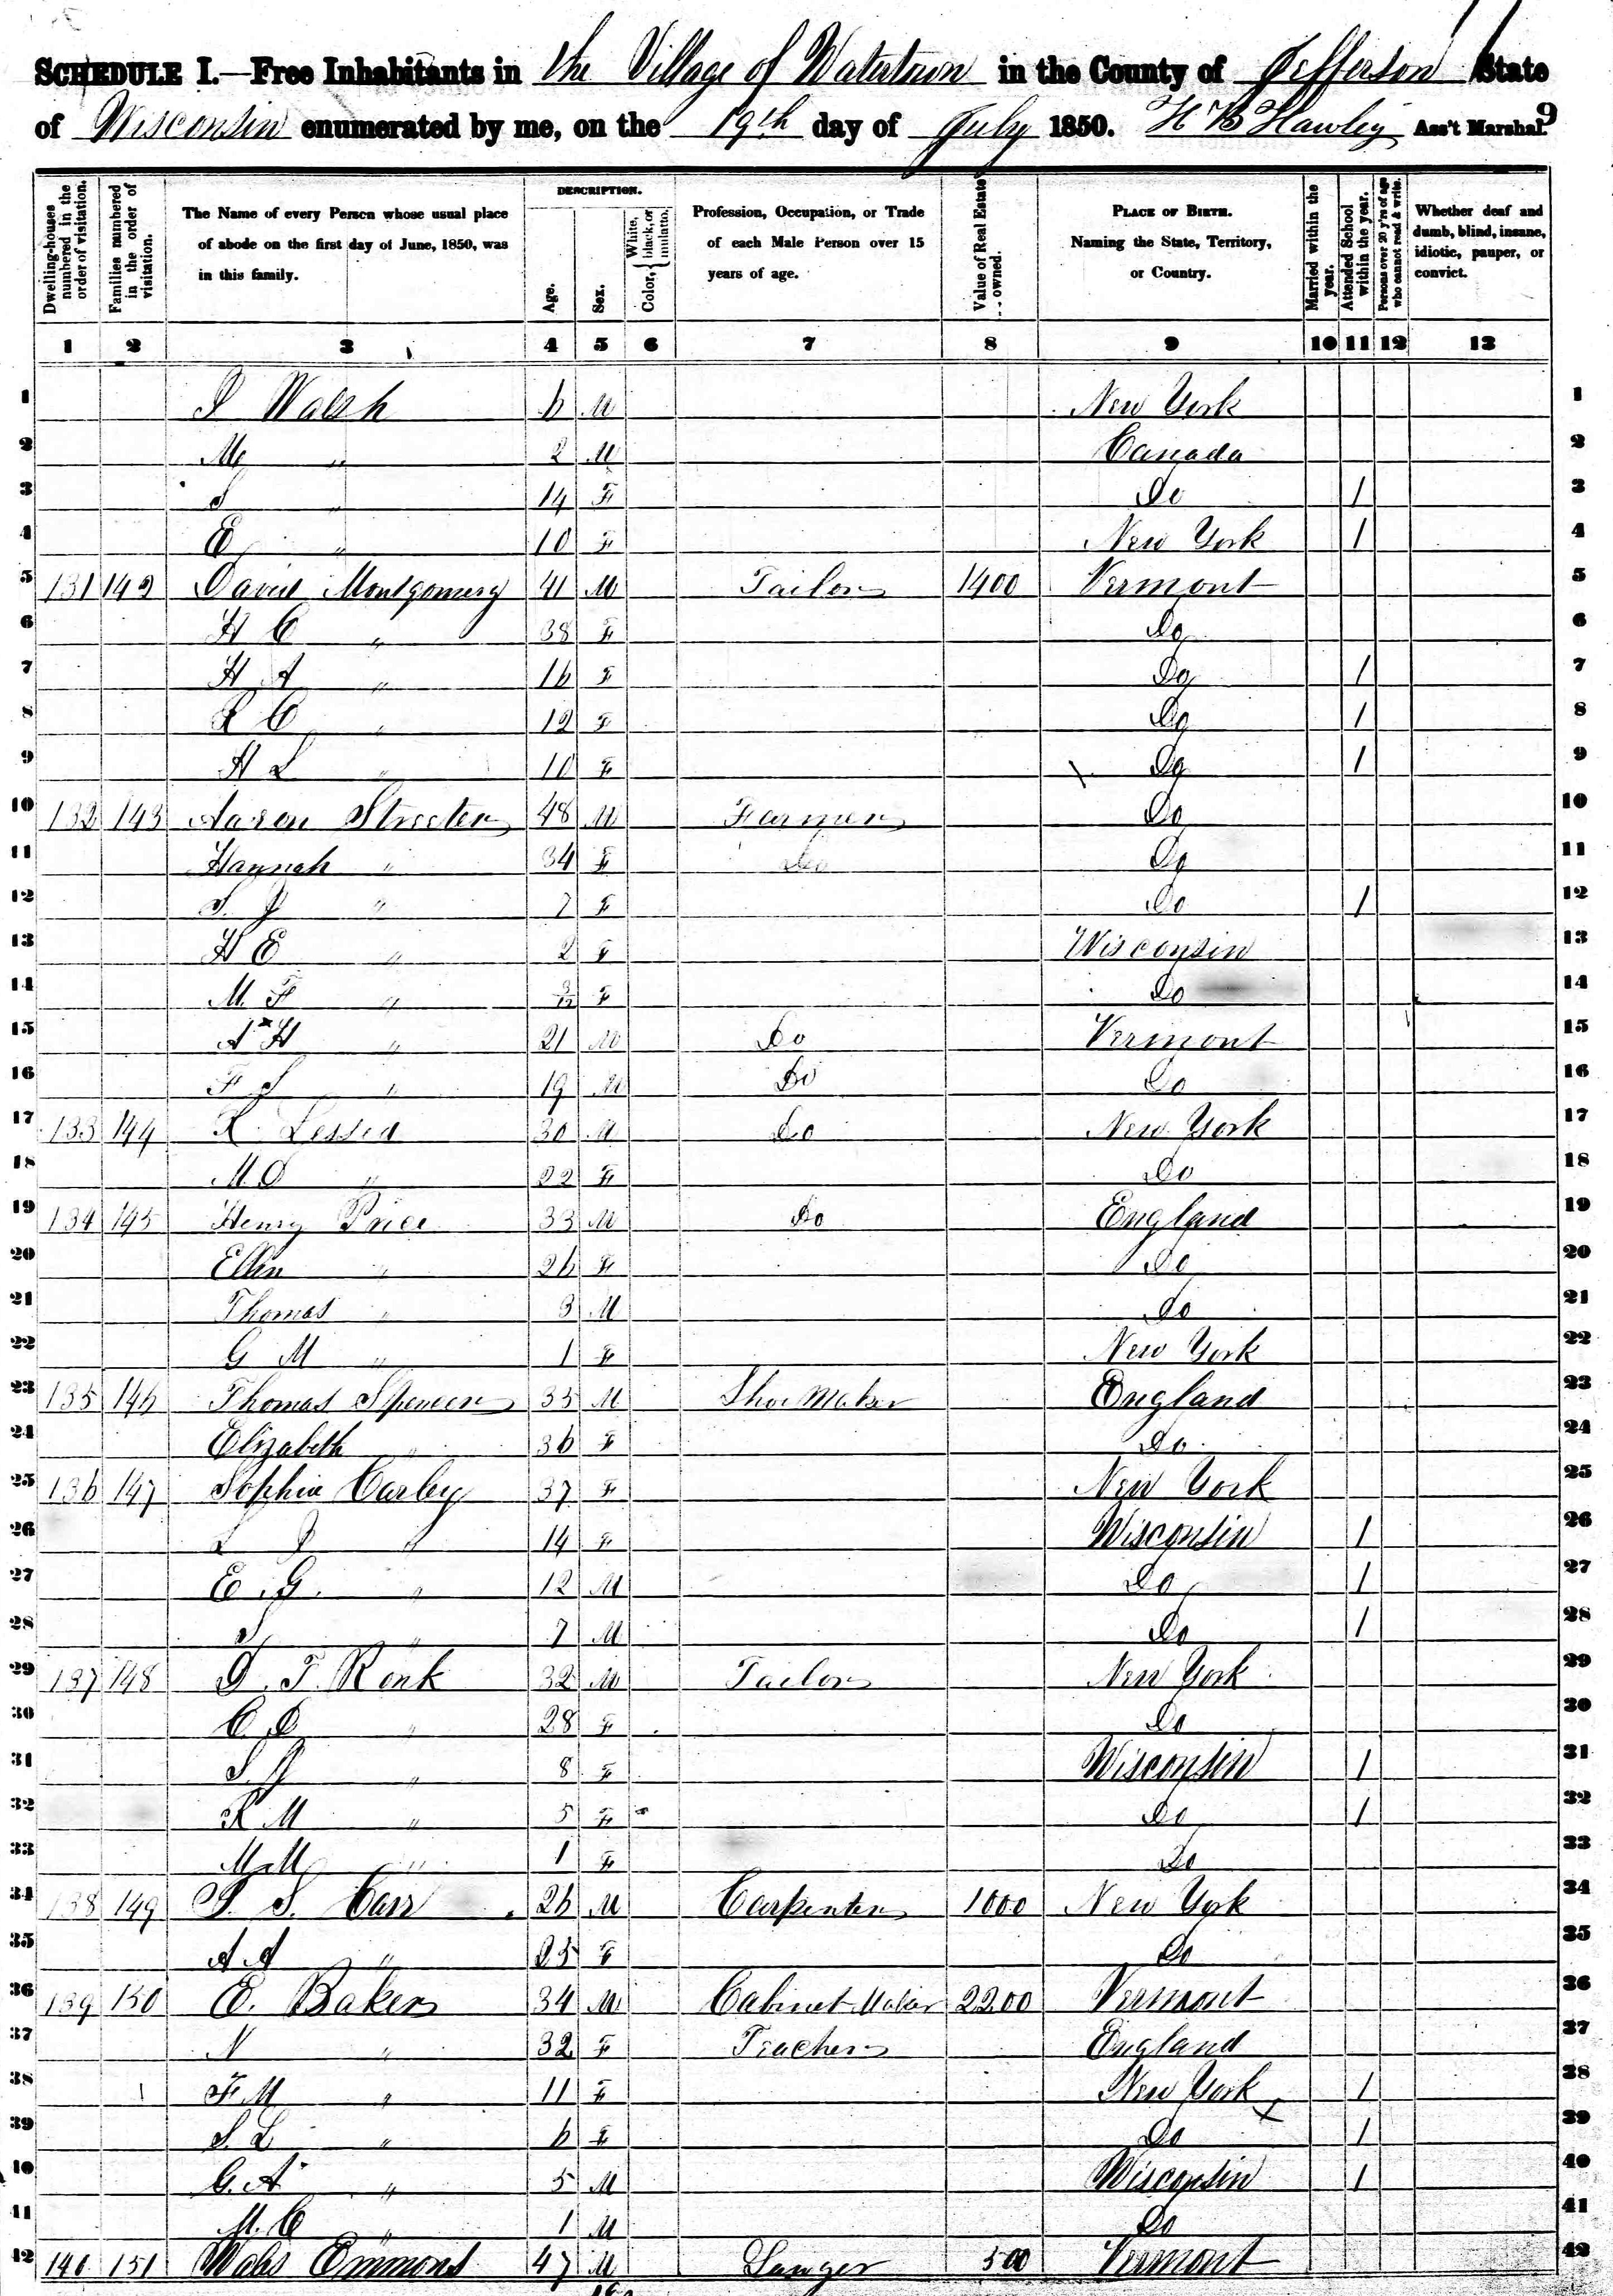 SCHEDULE I.—Free Inhabitants in the Village of Watertown in the County of Jefferson State
of Wisconsin enumerated by me, on the 19th day of July 1850. H B Hawley Ass't Marshal. 9
Dwelling-houses numbered in the order of visitation.
Families numbered in the order of visitation.
The Name of every Person whose usual place of abode on the first day of June, 1850, was in this family.
DESCRIPTION.
Age.
Sex.
Color, { White, black, or mulatto.
Profession, Occupation, or Trade of each Male Person over 15 years of age.
Value of Real Estate owned.
PLACE OF BIRTH. Naming the State, Territory, or Country.
Married within the year.
Attended School within the year.
Persons over 20 y'rs of age who cannot read & write.
Whether deaf and dumb, blind, insane, idiotic, pauper, or convict.
1 2 3 4 5 6 7 8 9 10 11 12 13
1 Walsh 6 M New York 1
2 M " 2 M Canada 2
3 S " 14 F Do 1 3
4 E " 10 F New York 1 4
5 131 142 David Montgomery 41 M Tailor 1400 Vermont 5
6 H C " 38 F Do 6
7 H A " 16 F Do 1 7
8 C " 12 F Do 1 8
9 H L " 10 F Do 1 9
10 132 143 Aaron Streeter 48 M Farmer Do 10
11 Hannah " 34 F Do Do 11
12 S. J " 7 F Do 1 12
13 H E " 2 F Wisconsin 13
14 M. F " F Do 14
15 A H " 21 M Do Vermont 15
16 F S " 19 M Do Do 16
17 133 144 30 M Do New York 17
18 M " 22 F Do 18
19 134 145 Henry Price 33 M Do England 19
20 Ellen " 26 F Do 20
21 Thomas " 3 M Do 21
22 G M " 1 F New York 22
23 135 146 Thomas Spencer 35 M Shoe Maker England 23
24 Elizabeth " 36 F Do 24
25 136 147 Sophia Carley 37 F New York 25
26 " 14 F Wisconsin 1 26
27 E. G. " 12 M Do 1 27
28 S " 7 M Do 1 28
29 137 148 D. F. Ronk 32 M Tailor New York 29
30 C. D " 28 F Do 30
31 S. J " 8 F Wisconsin 1 31
32 R M " 5 F Do 1 32
33 M. M " 1 F Do 33
34 138 149 S. Carr 26 M Carpenter 1000 New York 34
35 A A " 25 F Do 35
36 139 150 E. Baker 34 M Cabinet Maker 2200 Vermont 36
37 N " 32 F Teacher England 37
38 F. M " 11 F New York 1 38
39 S. L " 6 F Do 1 39
40 G. A " 5 M Wisconsin 1 40
41 M. C " 1 M Do 41
42 140 151 Emmons 47 M 500 Vermont 42